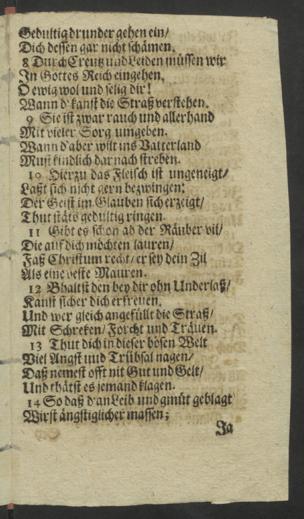 Gedultig drunder gehen ein/
Dich dessen gar nicht schämen.
8 Durch Creutz und Leiden müssen wir
In Gottes Reich eingehen,
O ewig wol und selig dir!
Wann d'kanst die Straß verstehen.
9 Sie ist zwar rauch und allerhand
Mit vieler Sorg umgeben.
Wann d'aber wilt ins Vatterland
Must kindlich darnach streben.
10 Hierzu das Fleisch ist ungeneigt/
Laßt sich nicht gern bezwingen:
Der Geist im Glauben sich erzeigt/
Thut stäts gedultig ringen.
11 Gibt es schon ab der Räuber vil/
Die auf dich möchten lauren/
Faß Christum recht/ er sey dein Zil
Als eine veste Mauren.
12 Bhaltst den bey dir ohn Underlaß/
Kanst sicher dich erfreuen,
Und wer gleich angefüllt die Straß/
Mit Schreken/ Forcht und Träuen.
13 Thut dich in dieser bösen Welt
Viel Angst und Trübsal nagen/
Daß nemest offt nit Gut und Gelt/
Und thätst es jemand klagen.
14 So daß d'an Leib und gmüt geblagt
Wirst ängstiglicher massen;
Ja